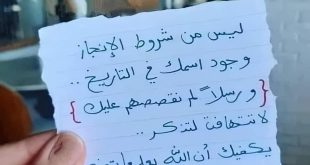 ليس من شروط الإنجاز
وجود اسمك في التاريخ ..
{ ورسلاً لم نقصصهم عليك }
لا تتهافت لتذكر ..
يكفيك أن الله يعلم